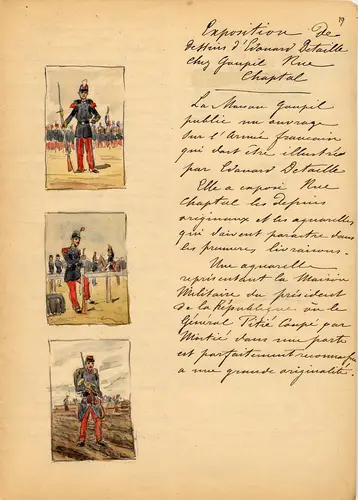 19
Exposition De
dessins d'Edouard Detaille
chez Goupil Rue
Chaptal
La Maison Goupil
publie un ouvrage
sur l'Armée francaise
qui doit être illustrée
par Edouard Detaille
Elle a exposé Rue
Chaptal les depuis
originaux et les aquarelles
qui doivent paraitre dans
les premieres livraisons.
Une aquarelle
représentant la Maison
Militaire du président
de la République ou le
Général Pitié Coupé par
dans une porte
est parfaitement
a une grande originalité.